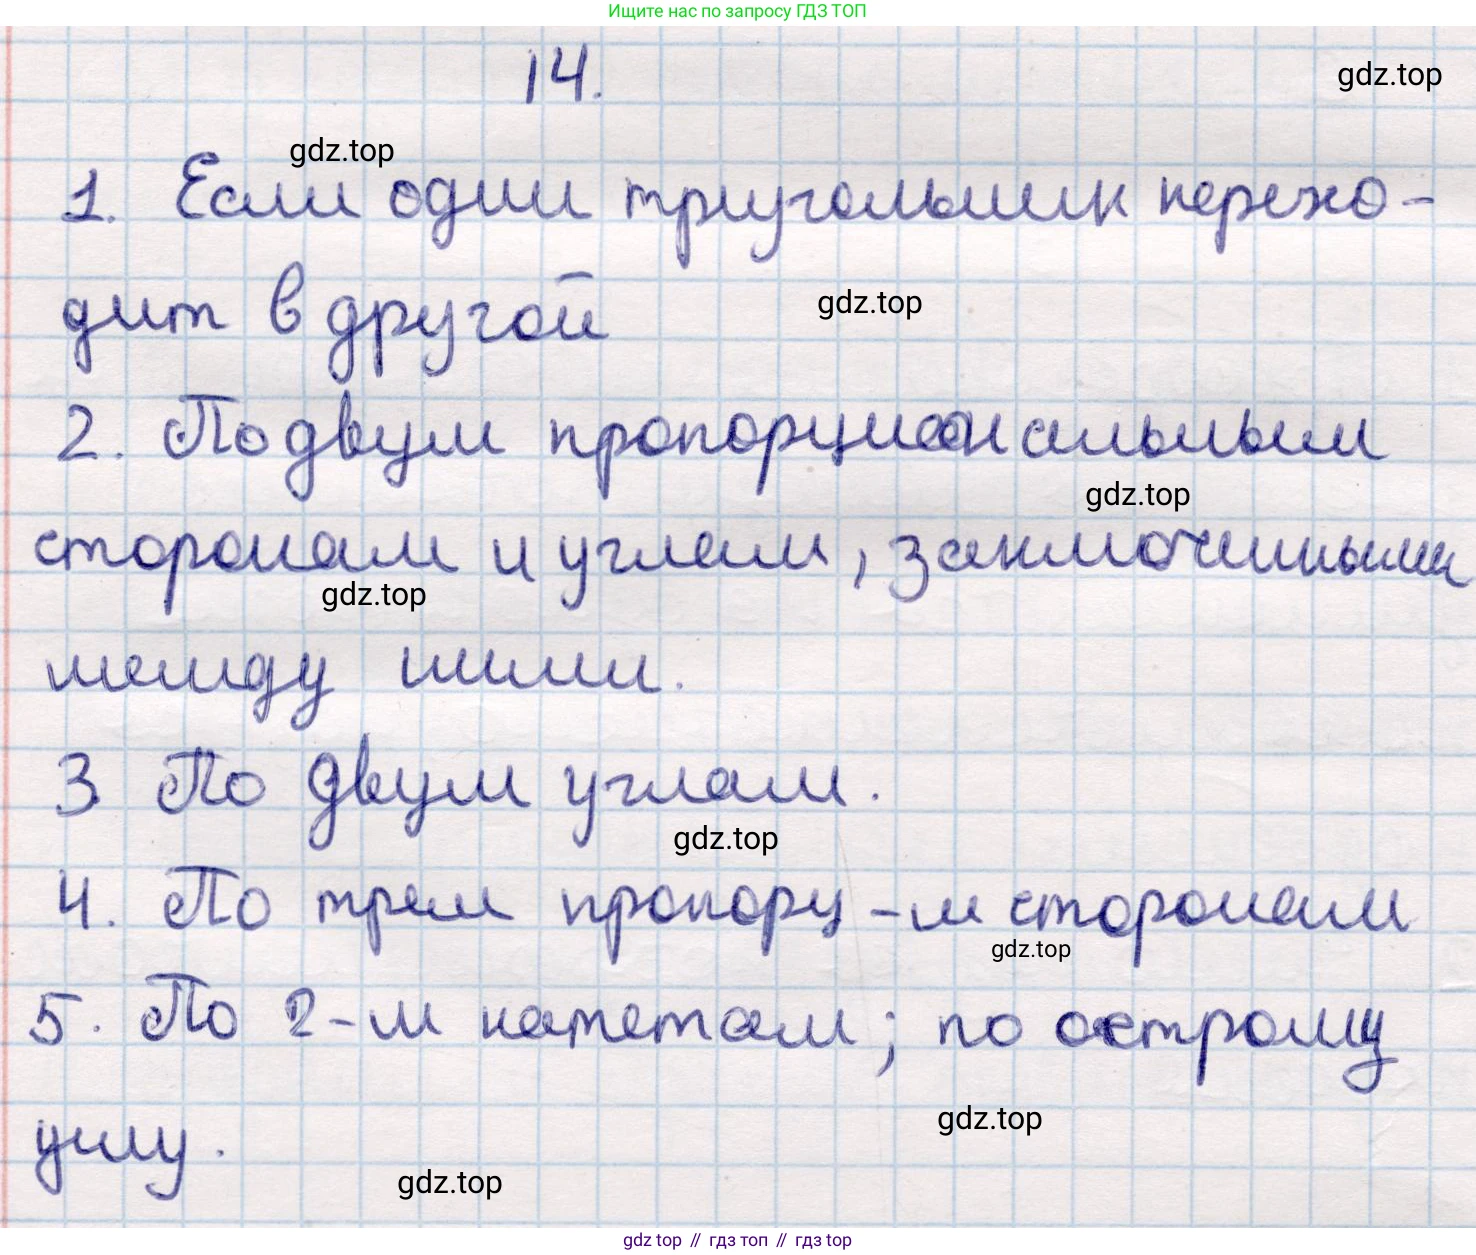 Ищите нас по запросу ГДЗ ТОП
14.
gdz.top
gdz.top
1. Если один треугольник перехо-
дит в другой
gdz.top
2. По двум пропорциональным
gdz.top
сторонам и углам, заключенными
gdz.top
между ними.
3 По двум углам.
gdz.top
4. По трем пропорц-м сторонам
gdz.top
5. По 2-м катетам; по острому
углу.
gdz.top
gdz.top
gdz top // гдз топ // гдз top